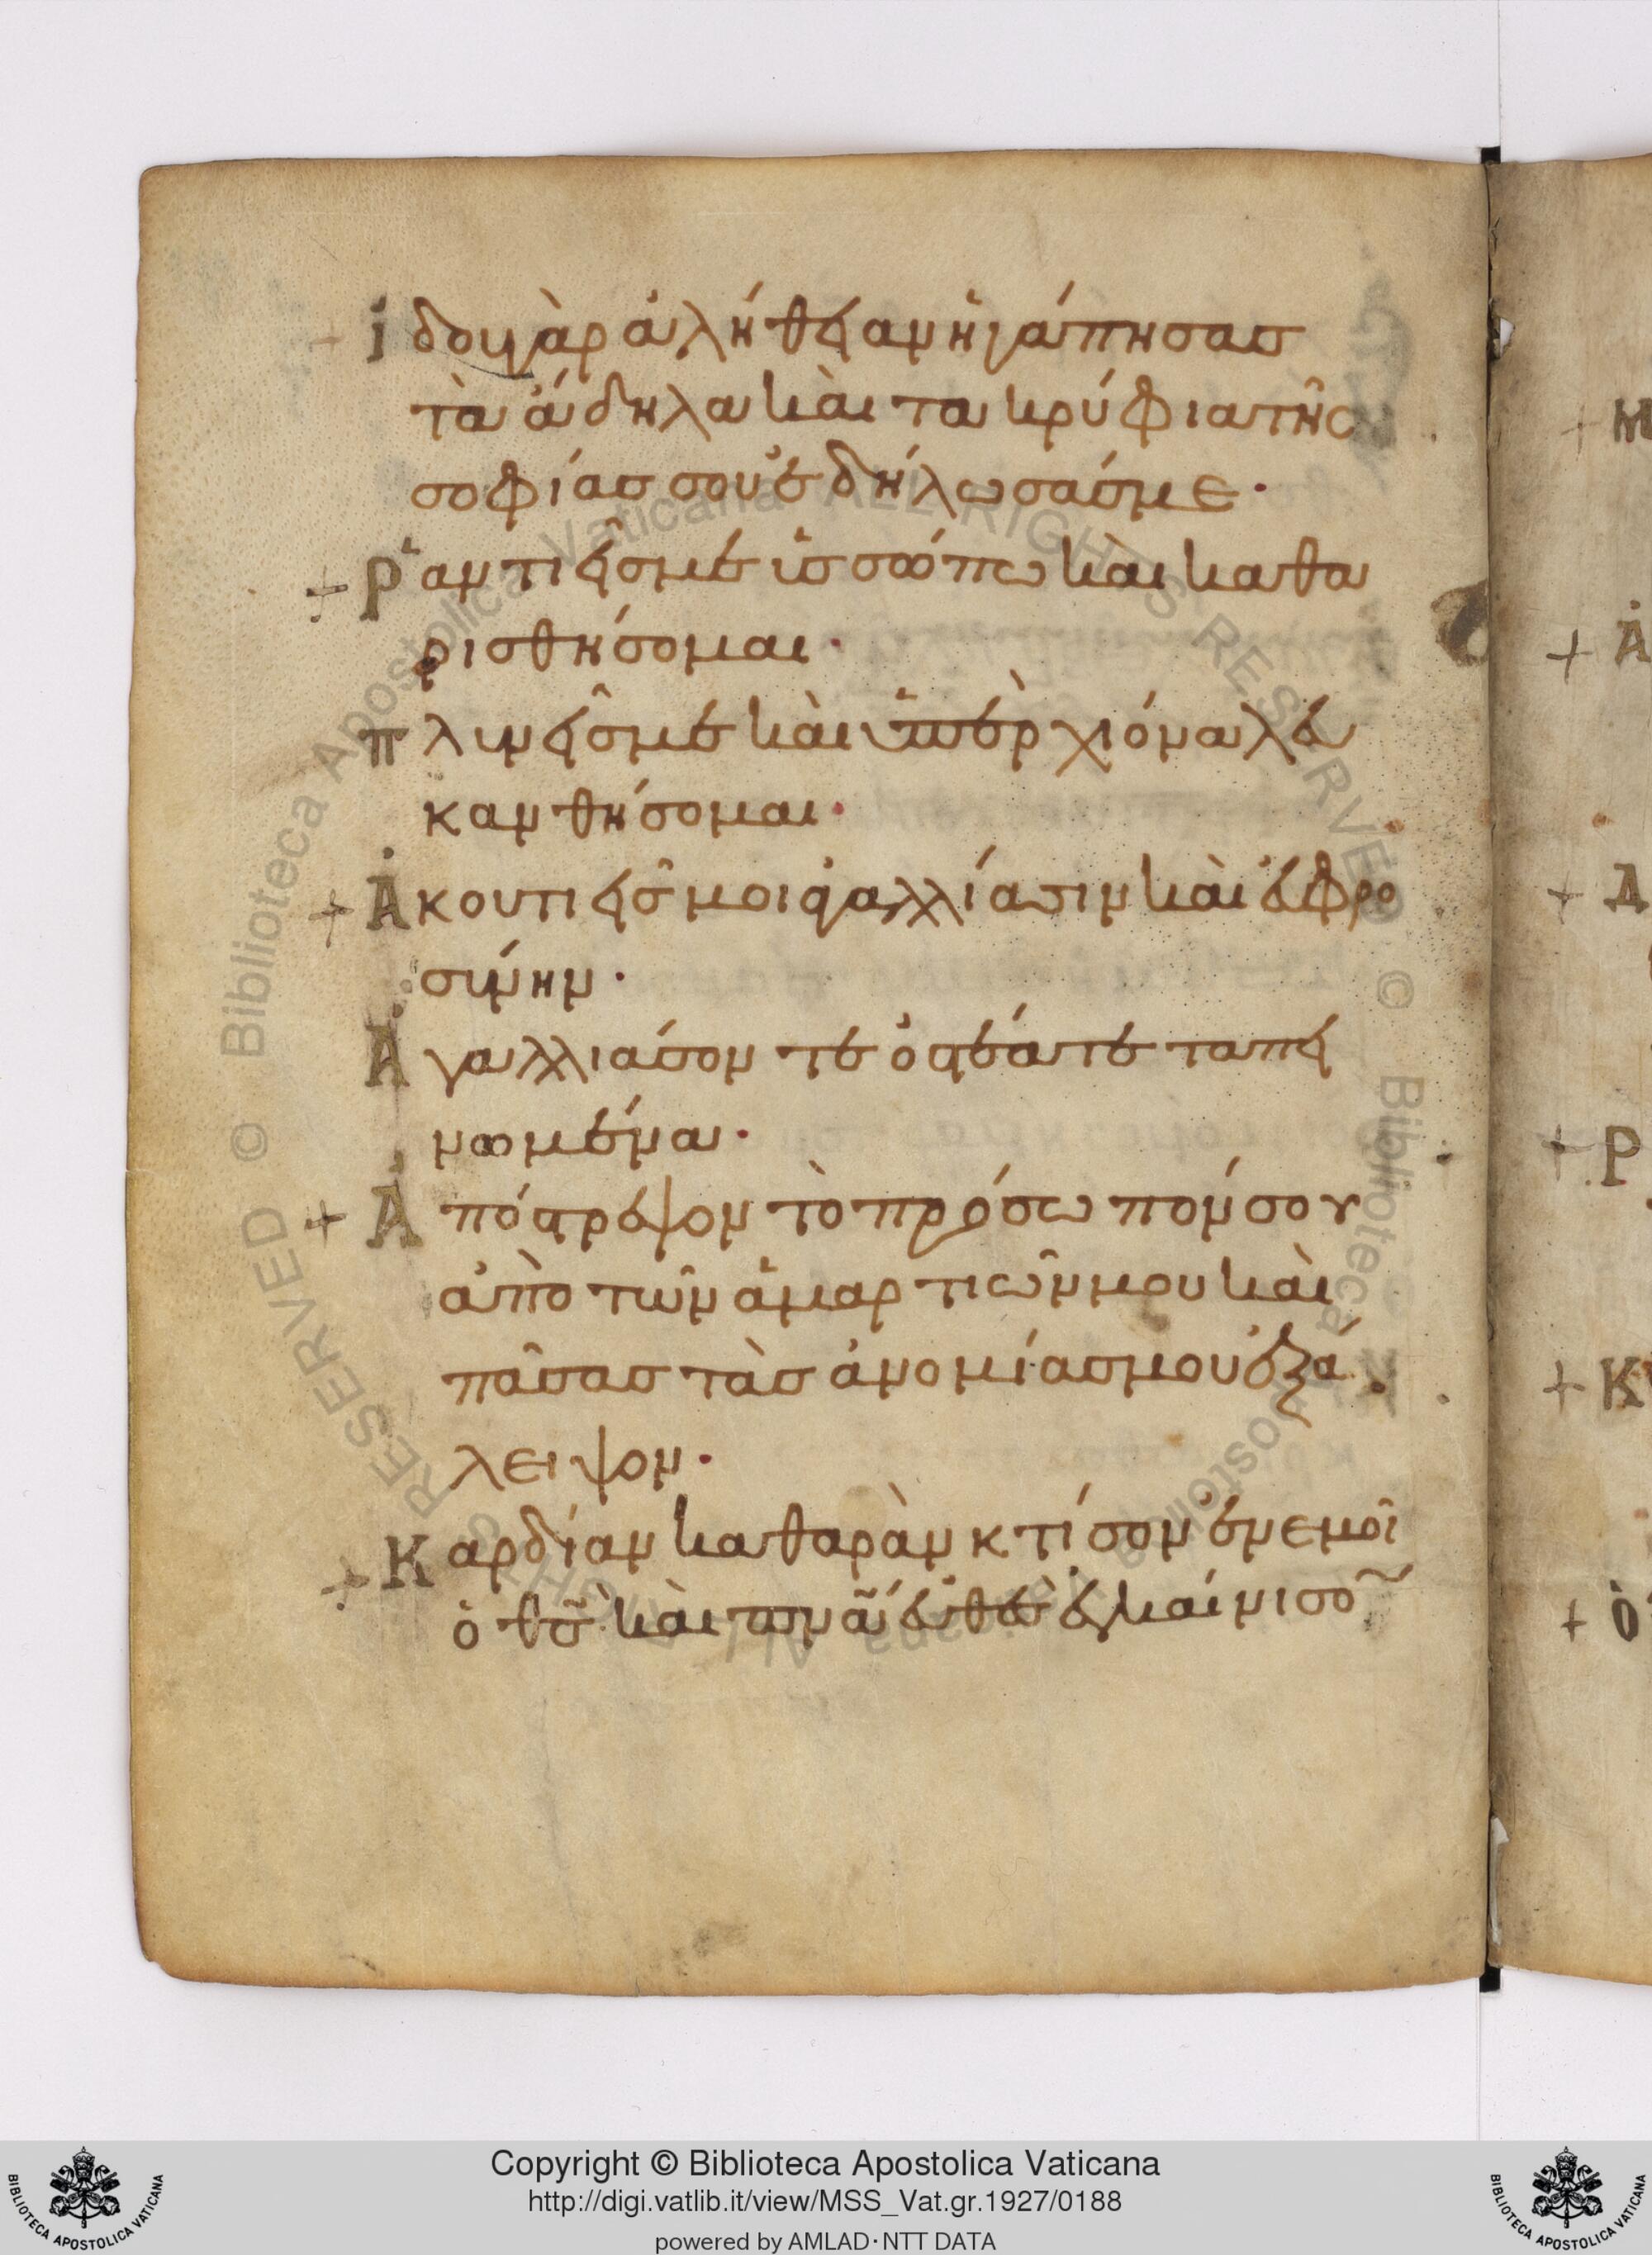 ἰδου γὰρ ἀλήθειαν ἠγάπησας
τὰ ἄδηλα καὶ τα κρύφια τῆς
σοφίας σου ἐδήλωσάς με·
+ Ῥαντιεῖς με ὑσσώπω καὶ καθα
ρισθήσομαι·
πλυνεῖς με καὶ ὑπὲρ χιόνα λευ
κανθήσομαι·
+ Ἀκουτιεῖς μοι ἀγαλλίασιν καὶ εὐφρο
σύνην·
Ἀγαλλιάσονται ὀστέα τε ταπει
νωμένα·
+ Ἀπόστρεψον τὸ πρόσωπόν σου
ἀπὸ τῶν ἁμαρτιῶν μου καὶ
πάσας τὰς ἀνομίας μου ἐξά
λειψον·
+ Καρδίαν καθαρὰν κτίσον ἐν εμοὶ
ὁ θς̃ καὶ πνᾶ εὐθὲς ἐγκαίνισο̃
+ Μ
+ Ἀ
+ Δ
+ Ρ
+ Κ
+ Ὁ
© Biblioteca Apostolica Vaticana ALL RIGHTS RESERVED
Copyright © Biblioteca Apostolica Vaticana
http://digi.vatlib.it/view/MSS_Vat.gr.1927/0188
powered by AMLAD·NTT DATA
BIBLIOTECA APOSTOLICA VATICANA
BIBLIOTECA APOSTOLICA VATICANA